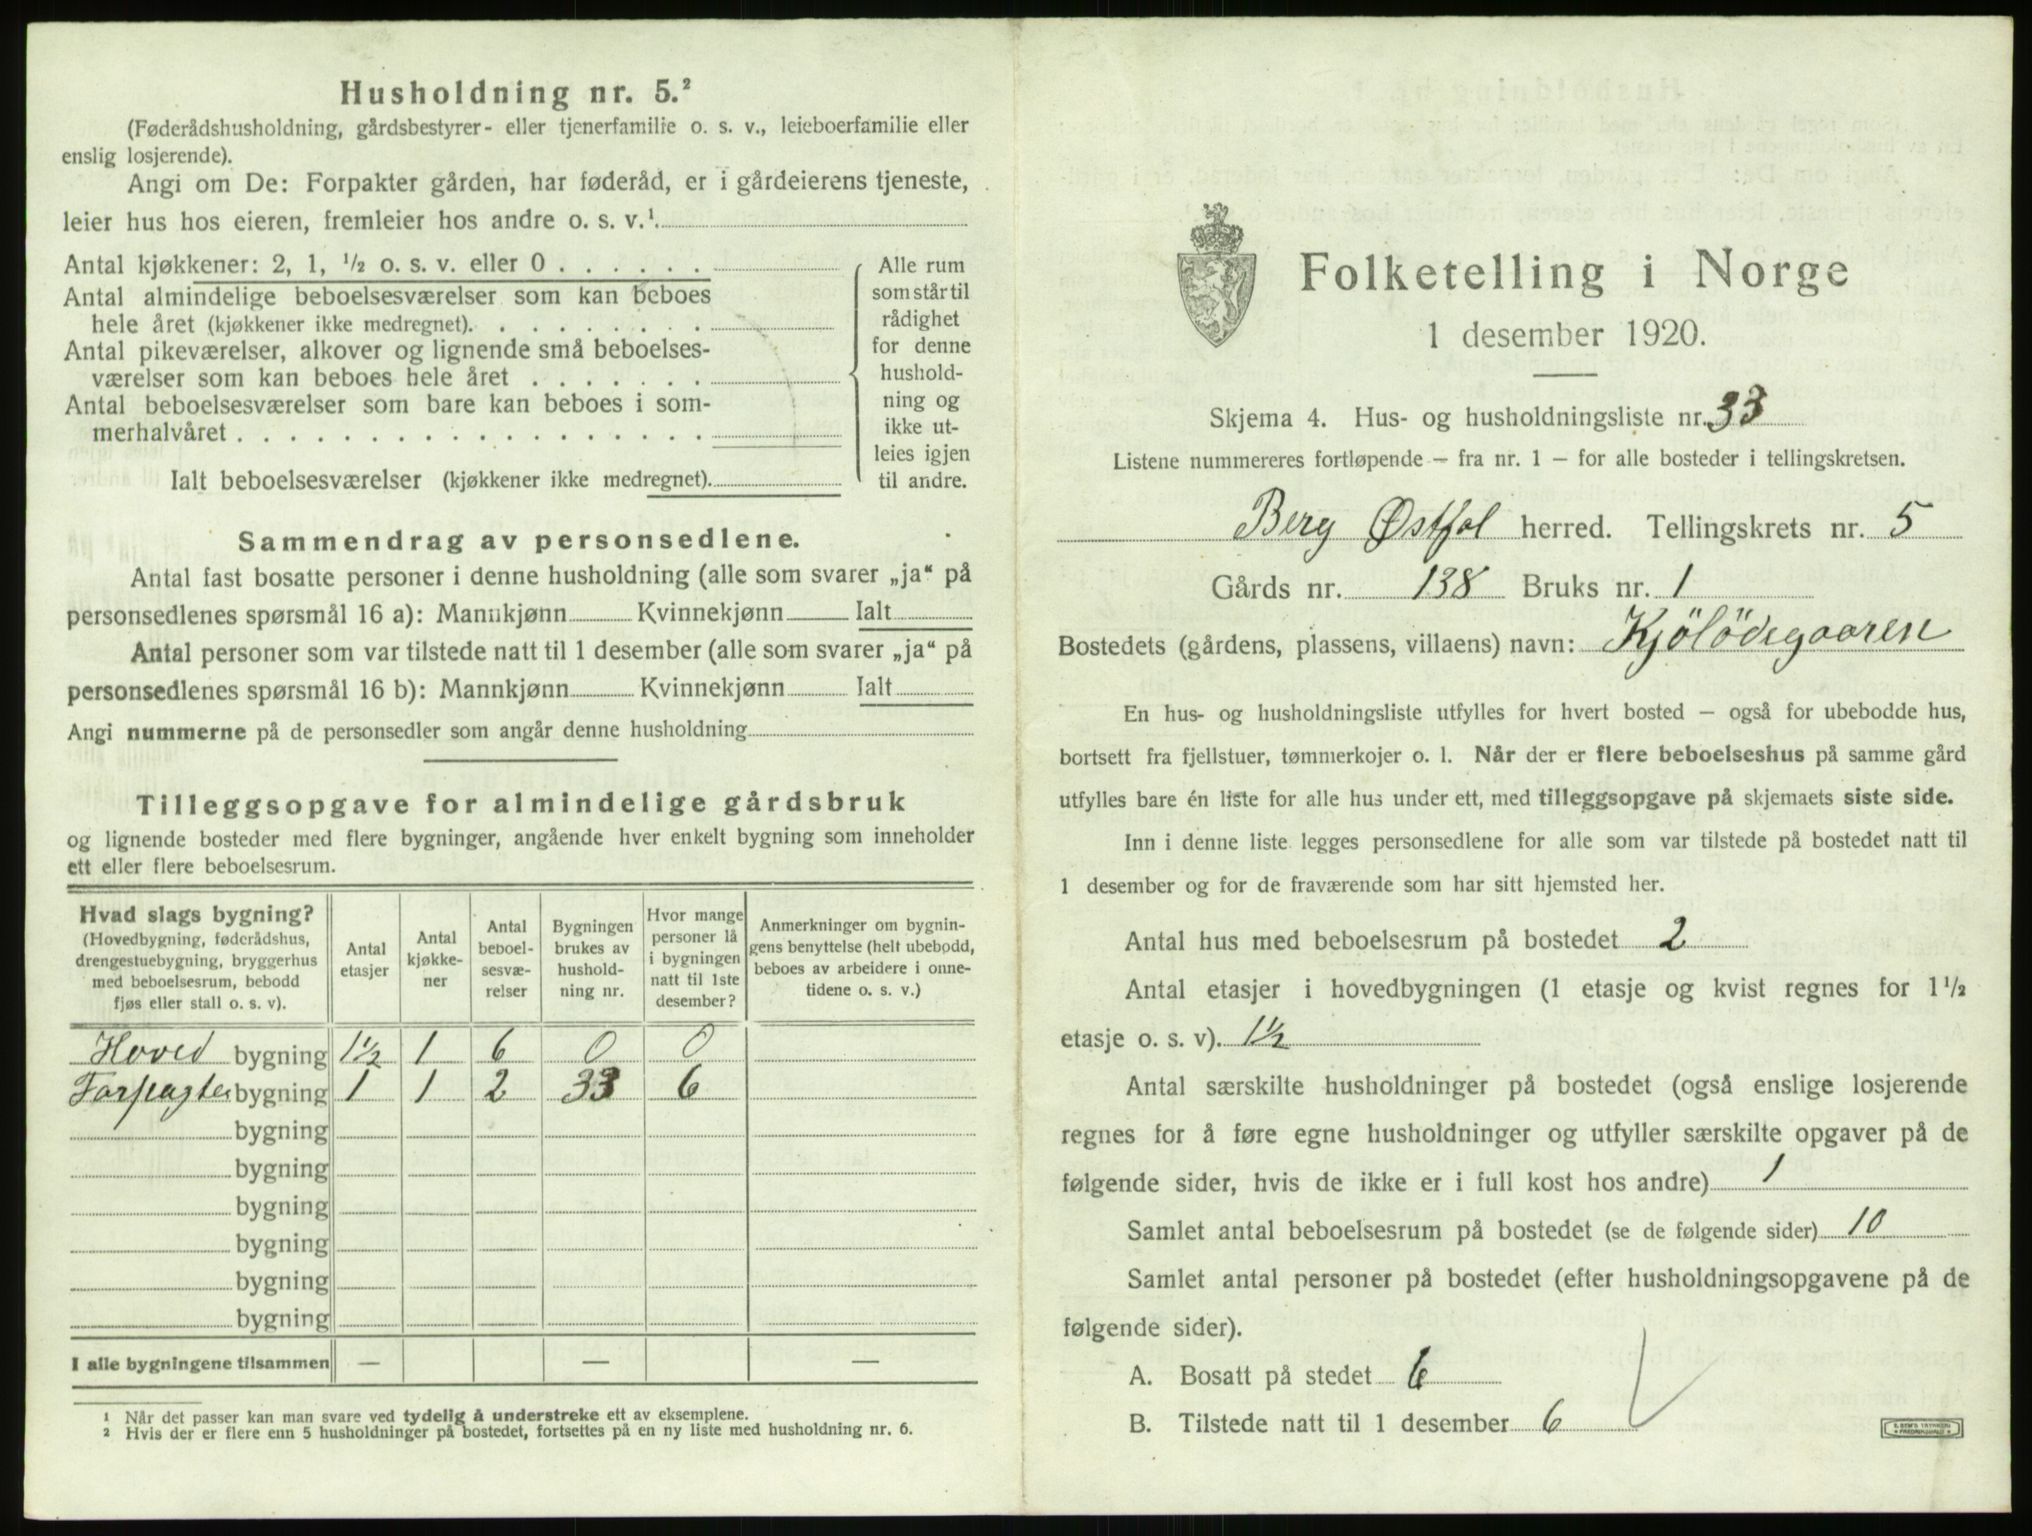 Husholdning nr. 5.²
(Føderådshusholdning, gårdsbestyrer- eller tjenerfamilie o. s. v., leieboerfamilie eller
enslig losjerende).
Angi om De: Forpakter gården, har føderåd, er i gårdeierens tjeneste,
leier hus hos eieren, fremleier hos andre o. s. v.¹.
Antal kjøkkener: 2, 1, ½ o. s. v. eller 0 . . . . . .
Antal almindelige beboelsesværelser som kan beboes
hele året (kjøkkener ikke medregnet). . . . . . . . .
Antal pikeværelser, alkover og lignende små beboelses-
værelser som kan beboes hele året . . . . . . .
Antal beboelsesværelser som bare kan beboes i som-
merhalvåret . . . . . . . . . . . . . . . . . .
Ialt beboelsesværelser (kjøkkener ikke medregnet).
Alle rum
som står til
rådighet
for denne
hushold-
ning og
ikke ut-
leies igjen
til andre.
Sammendrag av personsedlene.
Antal fast bosatte personer i denne husholdning (alle som svarer „ja“ på
personsedlenes spørsmål 16 a): Mannkjønn Kvinnekjønn Ialt
Antal personer som var tilstede natt til 1 desember (alle som svarer „ja“ på
personsedlenes spørsmål 16 b): Mannkjønn Kvinnekjønn Ialt
Angi nummerne på de personsedler som angår denne husholdning
Tilleggsopgave for almindelige gårdsbruk
og lignende bosteder med flere bygninger, angående hver enkelt bygning som inneholder
ett eller flere beboelsesrum.
Hvad slags bygning?
(Hovedbygning, føderådshus,
drengestuebygning, bryggerhus
med beboelsesrum, bebodd
fjøs eller stall o. s. v).
Antal
etasjer
Antal
kjøkke-
ner
Antal
beboel-
sesvæ-
relser
Bygningen
brukes av
hushold-
ning nr.
Hvor mange
personer lå
i bygningen
natt til 1ste
desember?
Anmerkninger om bygnin-
gens benyttelse (helt ubebodd,
beboes av arbeidere i onne-
tidene o. s. v.)
Hoved bygning 1½ 1 6 0 0
Forpagter bygning 1 1 2 33 6
bygning
bygning
bygning
bygning
bygning
bygning
I alle bygningene tilsammen — — —
¹ Når det passer kan man svare ved tydelig å understreke ett av eksemplene.
² Hvis der er flere enn 5 husholdninger på bostedet, fortsettes på en ny liste med husholdning nr. 6.
Folketelling i Norge
1 desember 1920.
Skjema 4. Hus- og husholdningsliste nr. 33
Listene nummereres fortløpende — fra nr. 1 — for alle bosteder i tellingskretsen.
Berg Østfol herred. Tellingskrets nr. 5
Gårds nr. 138 Bruks nr. 1
Bostedets (gårdens, plassens, villaens) navn: Kjölödegaaren
En hus- og husholdningsliste utfylles for hvert bosted — også for ubebodde hus,
bortsett fra fjellstuer, tømmerkojer o. l. Når der er flere beboelseshus på samme gård
utfylles bare én liste for alle hus under ett, med tilleggsopgave på skjemaets siste side.
Inn i denne liste legges personsedlene for alle som var tilstede på bostedet natt til
1 desember og for de fraværende som har sitt hjemsted her.
Antal hus med beboelsesrum på bostedet 2
Antal etasjer i hovedbygningen (1 etasje og kvist regnes for 1½
etasje o. s. v). 1½
Antal særskilte husholdninger på bostedet (også enslige losjerende
regnes for å føre egne husholdninger og utfyller særskilte opgaver på de
følgende sider, hvis de ikke er i full kost hos andre) 1
Samlet antal beboelsesrum på bostedet (se de følgende sider) 10
Samlet antal personer på bostedet (efter husholdningsopgavene på de
følgende sider).
A. Bosatt på stedet 6
B. Tilstede natt til 1 desember 6